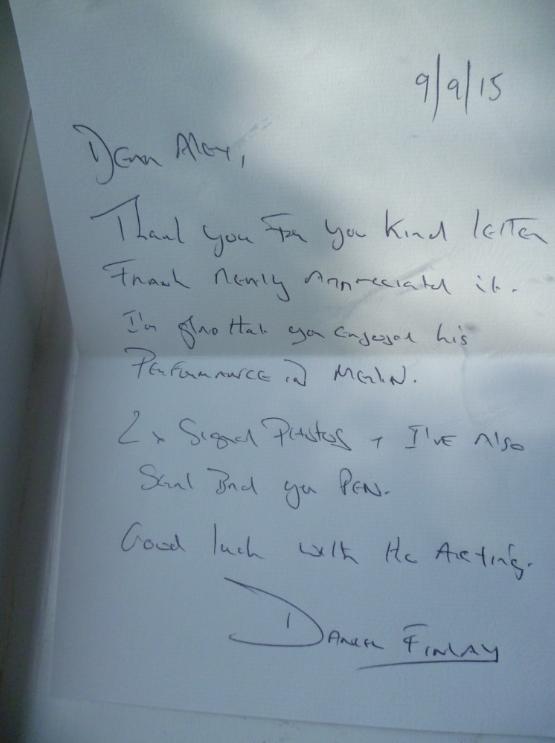 9/9/15
Dear Alex,
Thank you For you Kind letter
Frank really Appreciated it.
I'm glad that you enjoyed his
Performance in Merlin.
2 x Signed Photos + I've Also
Sent Back you PEN.
Good luck with the Acting.
Daniel Finlay